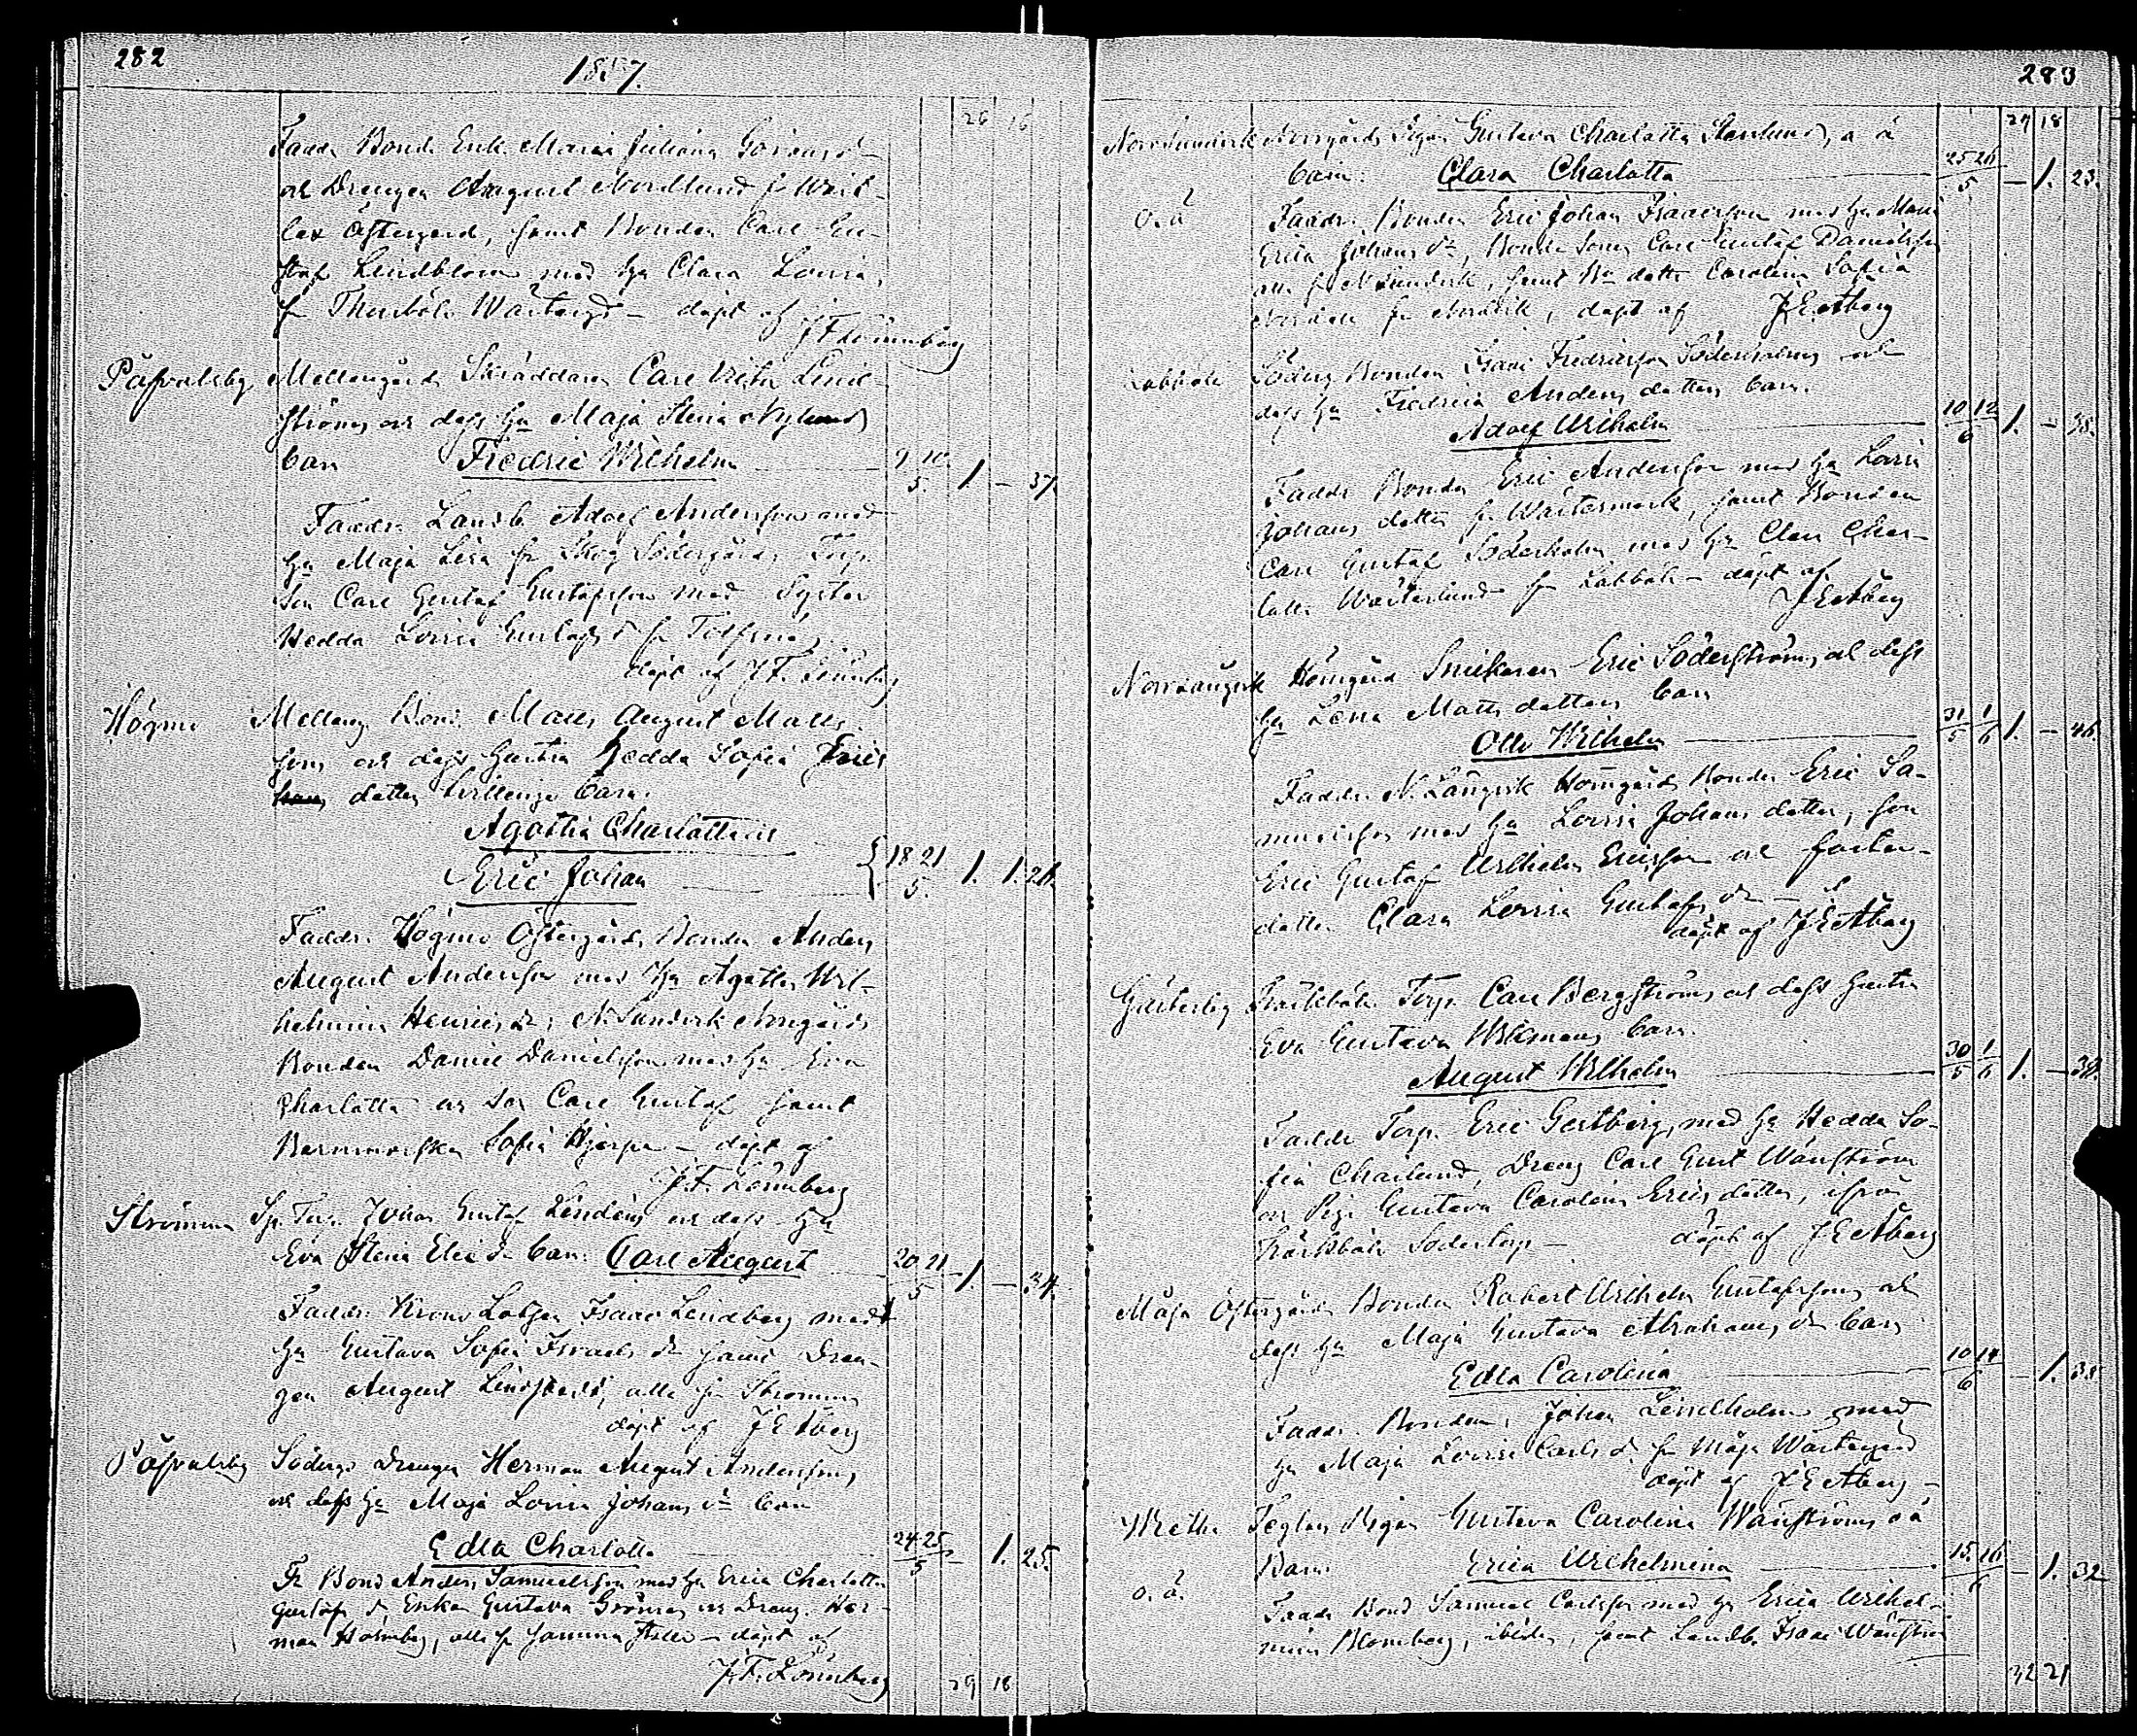 282
1857.
26 16
Faddr. Bond. Enk. Maria Juliana Göransd
och Drengen August Nordlund fr West-
lax Östergård, samt Bonden Carl Gu-
staf Lindblom med hu Clara Lovisa,
fr Westergd — döpt af
J F Lönnberg
Påfvalsby Mellangårds Skräddaren Carl Victor Lind-
ströms och dess hu Maja Stina Nylunds
barn Fredric Wilhelm 9 10 5. 1. — 37.
Faddr. Landb. Adolf Andersson med
hu Maja Lisa fr Skog Södergård, Torp.
son Carl Gustaf Gustafsson med Syster
Hedda Lovisa Gustafs d fr
döpt af J. F. Lönnberg
Högmo Mellang. Bond. Matts August Matts
sons och dess hustru Hedda Sofia Erics
dotters barn.
Agatha Charlotta och
Eric Johan { 18 21 5. 1. 1. 21.
Faddr. Högmo Östergårds Bonden Anders
August Andersson med hu Agatha Wil-
helmina Henrics dr; N. Sundvik Norrgårds
Bonden Daniel Danielsson med hu Eva
Charlotta och son Carl Gustaf samt
Barnmorskan Sofia Hjerpe — döpt af
J. F. Lönnberg
Strömma Johan Gustaf Lindéns och dess hu
Eva Stina Erics dr barn: Carl August 20 21 5 1. — 34.
Faddr. Krono Lotsen Isaac Lindberg med
hu Gustava Sofia Israels dr samt Dren-
gen August Lindstedt, alla fr Strömma
döpt af J E Åberg
Påfvalsby Söderg. Drengen Herman August Anderssons
och dess hu Maja Lovisa Johans dr barn
Edla Charlotta 24 25 5 — 1. 25.
Fr Bond Anders Samuelsson med hu Erica Charlotta
Gustafs d, Enkan Gustava Grönros och Dreng. Her-
man Holmberg, alla fr samma ställe — döpt af
J. F. Lönnberg
29 18
283
29 18
Norrsundvik Norrgårds Pigan Gustava Charlotta Stenlunds, o ä
barn. Clara Charlotta 25 26 5 — 1. 23.
o. ä Faddr. Bonden Eric Johan Isacsson med hu Maria
Erica Johans dr, Bonde Sonen Carl Gustaf Danielsson
alla fr N Sundvik, samt Bn dotter Carolina Sofia
döpt af J E Åberg
Labböle Söderg Bonden Isaac Fredricsson Söderholms och
dess hu Fredrica Anders dotters barn.
Adolf Wilhelm 10 12 6 1. — 38.
Faddr Bonden Eric Andersson med hu Lovisa
Johans dotter fr Westermark, samt Bonden
Carl Gustaf Söderholm med hu Clara Char-
lotta Westerlund fr Labböle — döpt af
J E Åberg
Norrlångvik Hemgård Snickaren Eric Söderströms och dess
hu Lena Matts dotters barn
Otto Wilhelm 31 5 1 6 1. — 46.
Faddr. N. Långvik Hemgårds Bonden Eric Sa-
muelsson med hu Lovisa Johans dotter, son
Eric Gustaf Wilhelm Ericsson och foster-
dotter Clara Lovisa Gustafs dr —
döpt af J E Åberg
Torp. Carl Bergströms och dess hustru
Eva Gustava Wikmans barn.
August Wilhelm 30 5 1 6 1. — 39.
Faddr Torp. Eric Gestberg, med hu Hedda So-
fia Charlund, Dreng Carl Gust Wänström
och Pig. Gustava Carolina Erics dotter, ifrån
Södertorp — döpt af J E Åberg
Måsa Östergårds Bonden Robert Wilhelm Gustafssons och
dess hu Maja Gustava Abrahams dr barn
Edla Carolina 10 14 6 — 1. 38
Faddr. Bonden, Johan Lindholm med
hu Maja Lovisa Carls d. fr Måsa Westergård
döpt af J E Åberg —
Wretha Pigan Gustava Carolina Wänströms oä
Barn Erica Wilhelmina 15. 16 6 — 1. 32
o. ä. Faddr Bond Samuel Carlsson med hu Erica Wilhel-
mina Blomberg, ibidem, samt Landb. Isaac Wänström
32 21